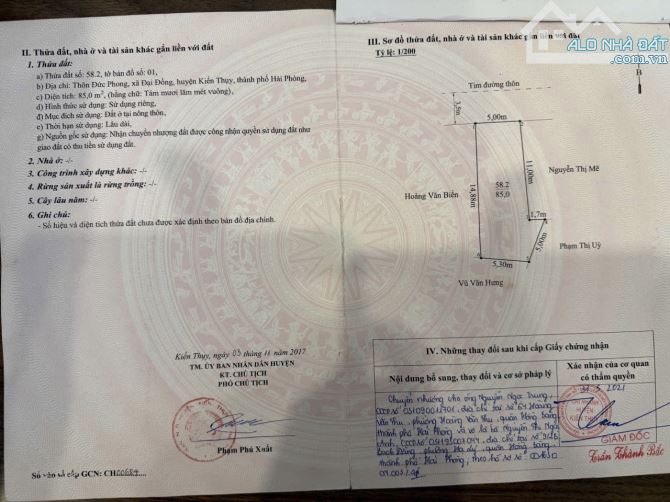 II. Thửa đất, nhà ở và tài sản khác gắn liền với đất
1. Thửa đất:
a) Thửa đất số: 58.2, tờ bản đồ số: 01,
b) Địa chỉ: Thôn Đức Phong, xã Đại Đồng, huyện Kiến Thụy, thành phố Hải Phòng,
c) Diện tích: 85,0 m², (bằng chữ: Tám mươi lăm mét vuông),
d) Hình thức sử dụng: Sử dụng riêng,
đ) Mục đích sử dụng: Đất ở tại nông thôn,
e) Thời hạn sử dụng: Lâu dài,
g) Nguồn gốc sử dụng: Nhận chuyển nhượng đất được công nhận quyền sử dụng đất như
giao đất có thu tiền sử dụng đất.
2. Nhà ở: -/-
3. Công trình xây dựng khác: -/-
4. Rừng sản xuất là rừng trồng: -/-
5. Cây lâu năm: -/-
6. Ghi chú:
- Số hiệu và diện tích thửa đất chưa được xác định theo bản đồ địa chính.
Kiến Thụy, ngày 03 tháng 11 năm 2017
TM. ỦY BAN NHÂN DÂN HUYỆN
KT. CHỦ TỊCH
PHÓ CHỦ TỊCH
Phạm Phú Xuất
Số vào sổ cấp GCN: CH
III. Sơ đồ thửa đất, nhà ở và tài sản khác gắn liền với đất
Tỷ lệ: 1/200
ALO NHÀ ĐẤT
B
Tim đường thôn
3,5m
5,00m
11,00m
Nguyễn Thị Mê
58.2
85,0
Hoàng Văn Biển
14,88m
1,7m
5,00m
Phạm Thị Uý
5,30m
Vũ Văn Hưng
IV. Những thay đổi sau khi cấp Giấy chứng nhận
Nội dung bổ sung, thay đổi và cơ sở pháp lý
Xác nhận của cơ quan
có thẩm quyền
Chuyển nhượng cho ông Nguyễn Ngọc Trung,
CCCD số 031090001701, địa chỉ tại số 64 Hoàng
Văn Thụ, phường Hoàng Văn Thụ, quận Hồng Bàng,
thành phố Hải Phòng và vợ là bà Nguyễn Thị
địa chỉ tại số
Bạch Đằng, phường Hạ Lý, quận Hồng Bàng,
thành phố Hải Phòng, theo hồ sơ số
5 2021
GIÁM ĐỐC
Trần Thành Bắc